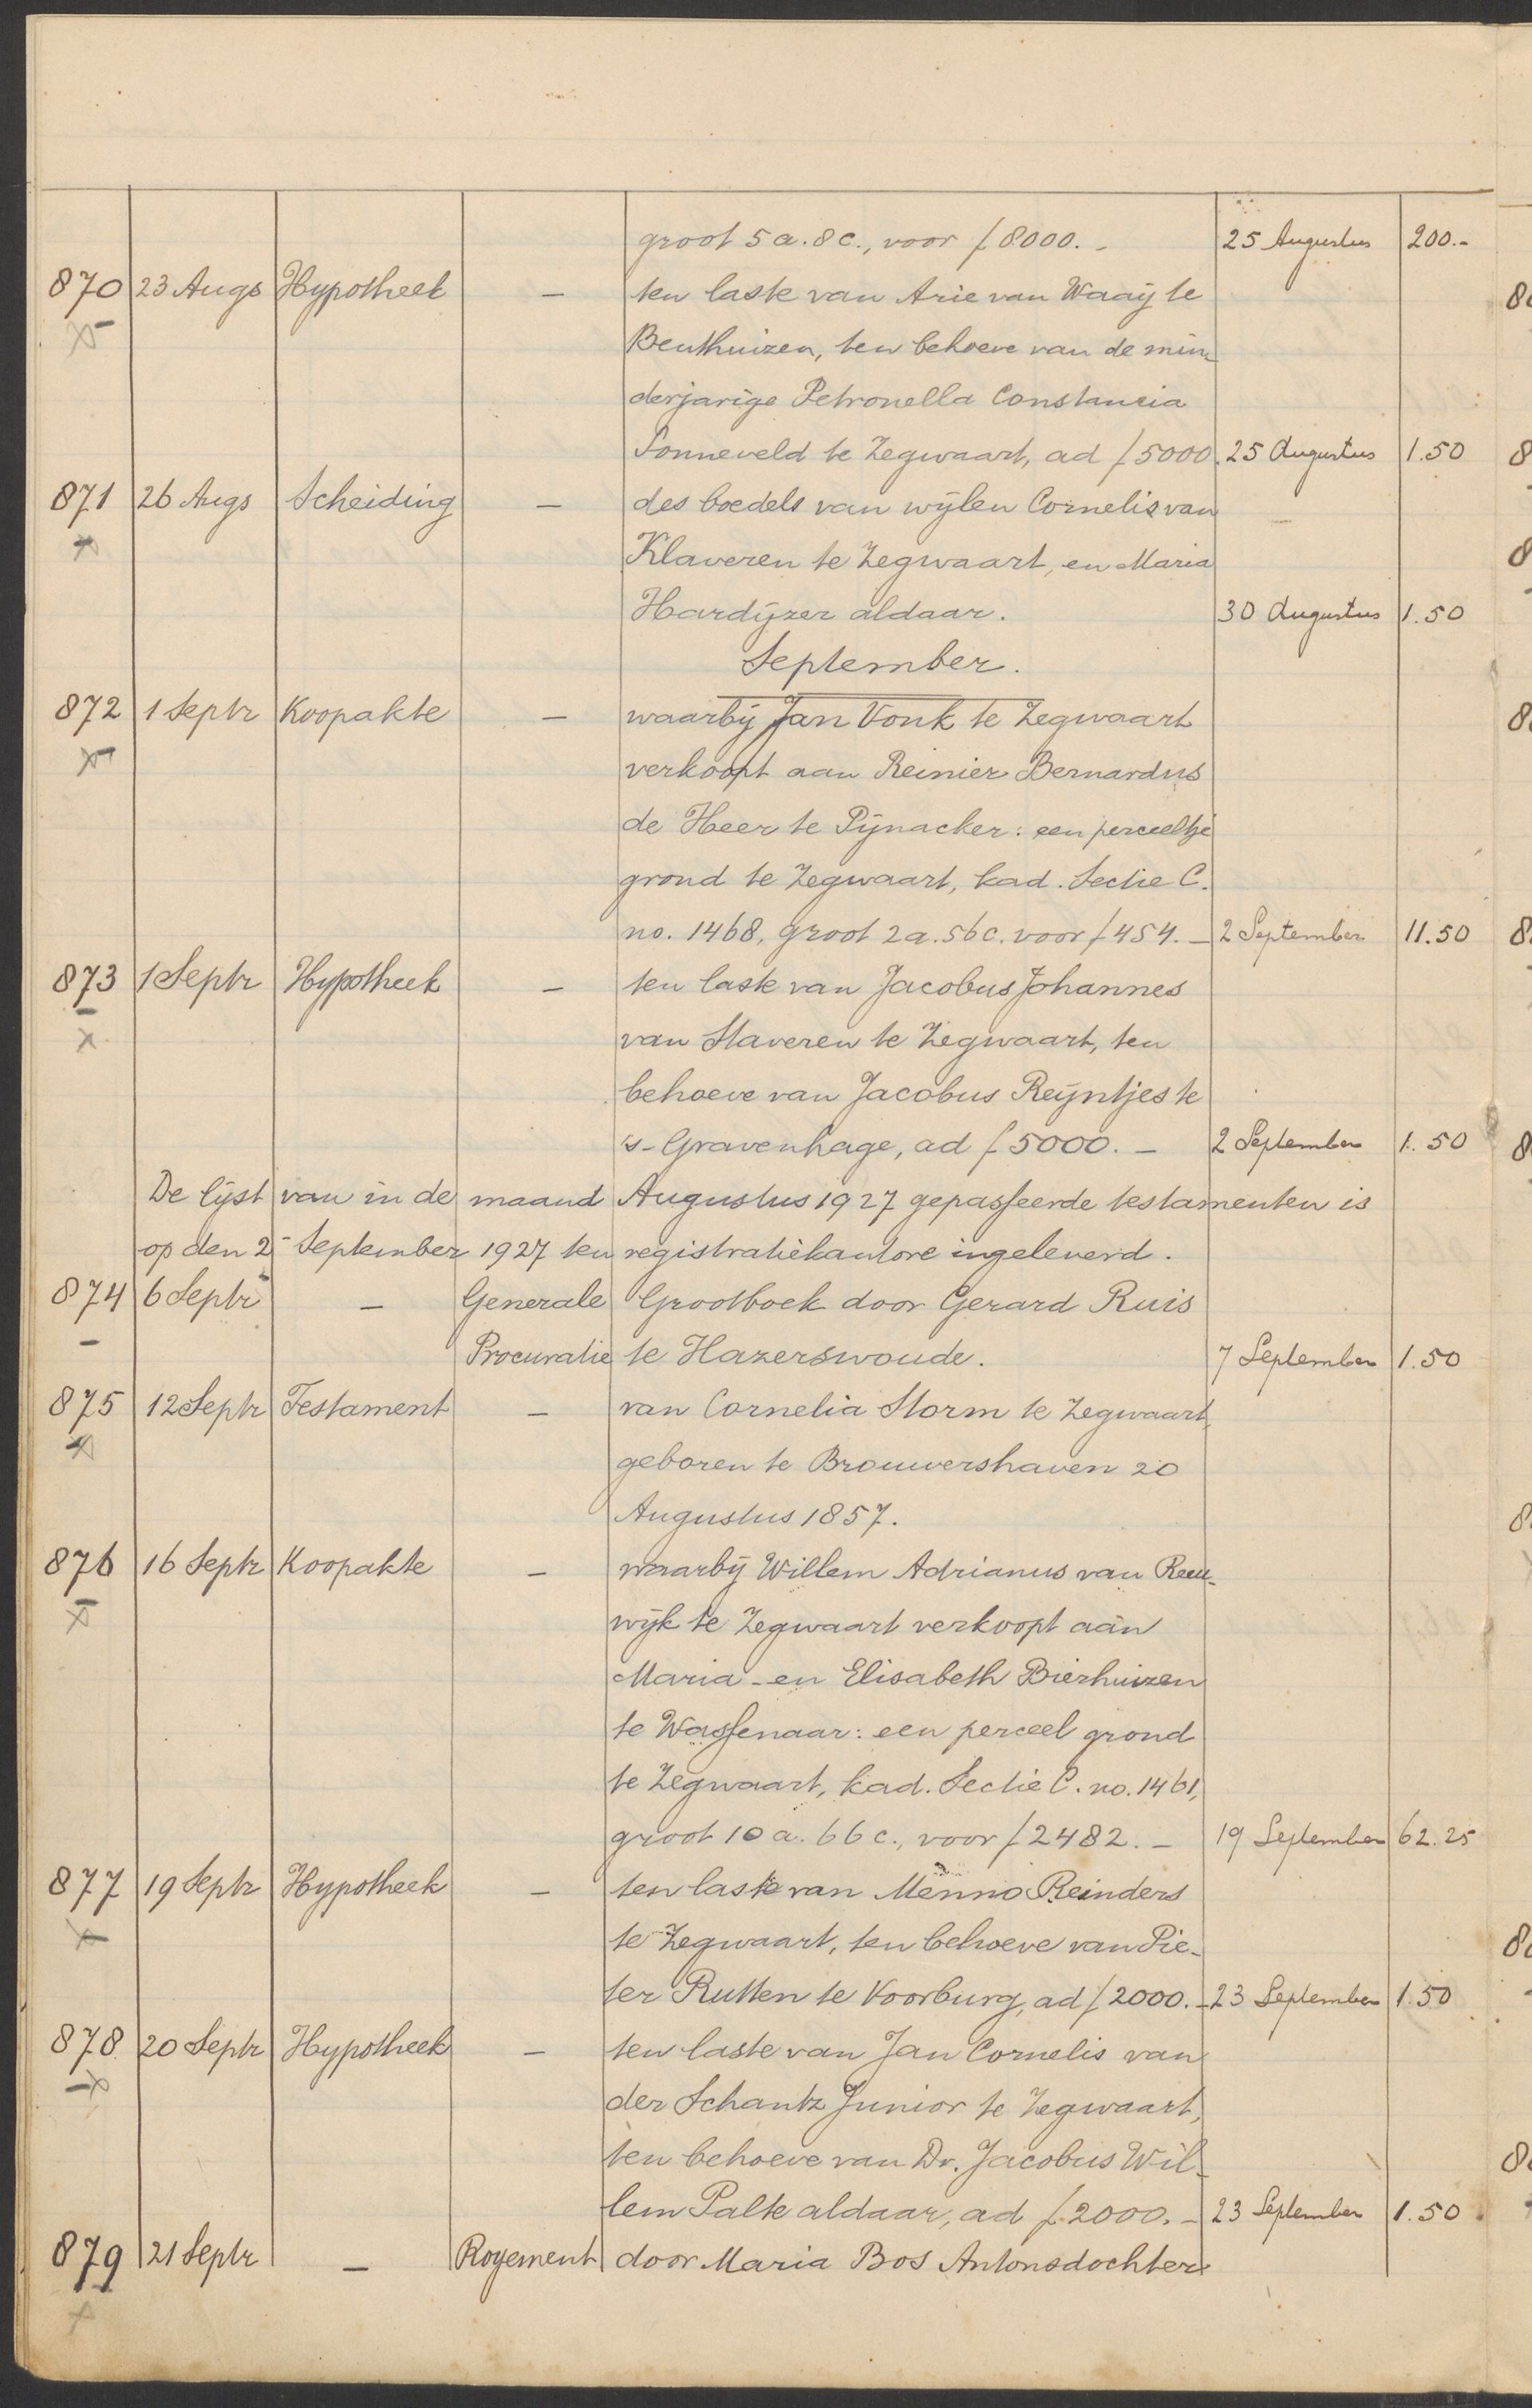 groot 5 a. 8 c., voor ƒ 8000.- 25 Augustus 200.-
870 23 Augs Hypotheek - ten laste van Arie van Waaij te
Benthuizen, ten behoeve van de min
derjarige Petronella Constancia
Sonneveld te Zegwaart, ad ƒ 5000. 25 Augustus 1.50
871 26 Augs Scheiding - des boedels van wijlen Cornelis van
Klaveren te Zegwaart, en Maria
Hardijzer aldaar. 30 Augustus 1.50
September.
872 1 Septr Koopakte - waarbij Jan Vonk te Zegwaart
verkoopt aan Reinier Bernardus
de Heer te Pijnacker: een perceeltje
grond te Zegwaart, kad. Sectie C.
no. 1468, groot 2 a. 56 c. voor ƒ 454.- 2 September 11.50
873 1 Septr Hypotheek - ten laste van Jacobus Johannes
van Staveren te Zegwaart, ten
behoeve van Jacobus Reijntjes te
's-Gravenhage, ad ƒ 5000.- 2 September 1.50
De lijst van in de maand Augustus 1927 gepasseerde testamenten is
op den 2 September 1927 ten registratiekantore ingeleverd.
874 6 Septr - Generale Grootboek door Gerard Ruis
Procuratie te Hazerswoude. 7 September 1.50
875 12 Septr Testament - van Cornelia Storm te Zegwaart,
geboren te Brouwershaven 20
Augustus 1857.
876 16 Septr Koopakte - waarbij Willem Adrianus van Reeu-
wijk te Zegwaart verkoopt aan
Maria - en Elisabeth Bierhuizen
te Wassenaar: een perceel grond
te Zegwaart, kad. Sectie C. no. 1461,
groot 10 a. 66 c., voor ƒ 2482.- 19 September 62.25
877 19 Septr Hypotheek - ten laste van Menno Reinders
te Zegwaart, ten behoeve van Pie-
ter Rutten te Voorburg, ad ƒ 2000.- 23 September 1.50
878 20 Septr Hypotheek - ten laste van Jan Cornelis van
der Schantz Junior te Zegwaart,
ten behoeve van Dr. Jacobus Wil-
lem Palte aldaar, ad ƒ 2000.- 23 September 1.50
879 21 Septr - Royement door Maria Bos Antonsdochter